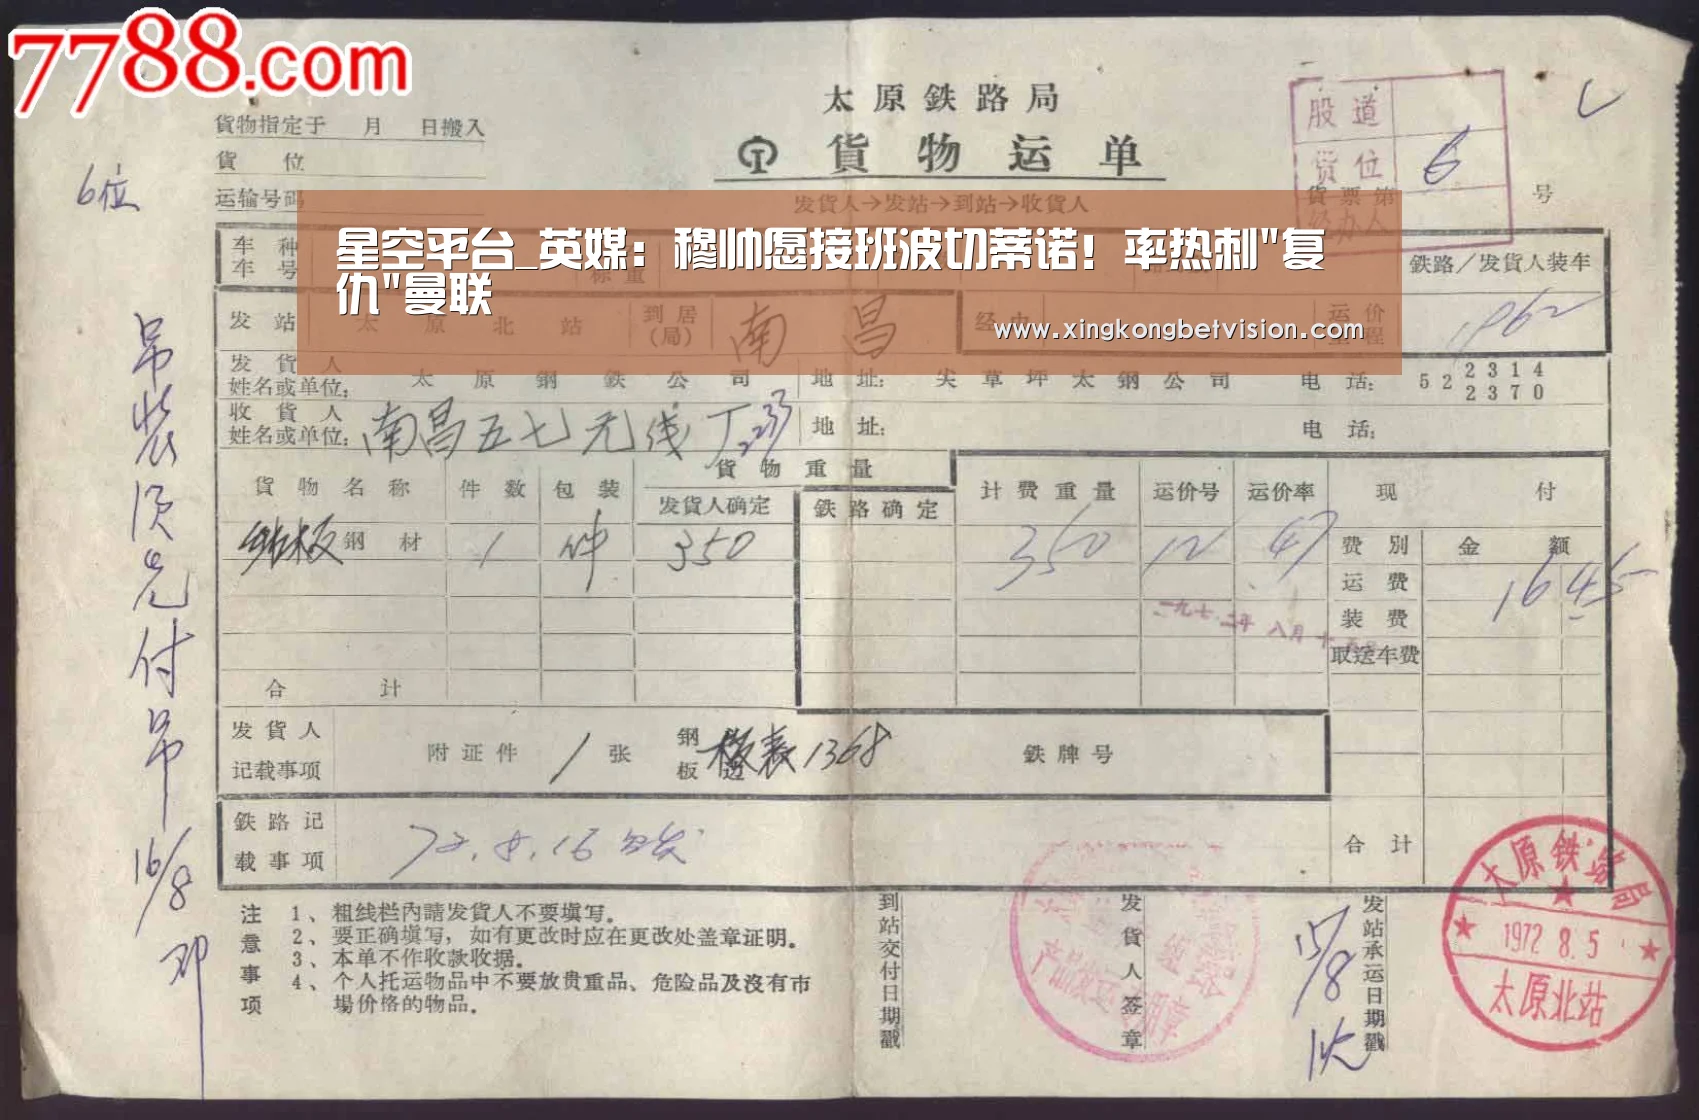 7788.com
太原鉄路局
貨物运单
貨物指定于 月 日搬入
貨 位
运输号码
6位
股道
货位 6
经办人
貨票第 号
发貨人→发站→到站→收貨人
星空平台_英媒：穆帅愿接班波切蒂诺！率热刺"复
仇"曼联
www.xingkongbetvision.com
车种
车号
标重
铁路/发貨人装车
发站 太原北站 到局(局) 南昌 经由 运价 1962
里程
发貨人
姓名或单位： 太原鋼鉄公司 地址： 尖草坪太钢公司 电话： 52 2314
2370
收貨人
姓名或单位： 南昌五七无线厂 地址： 电话：
貨物名称 件数 包装 貨物重量 计费重量 运价号 运价率 现付
发貨人确定 鉄路确定
钢材 1 件 350 350 12 47 费别 金额
运费 1645
装费
一九七二年八月十
取送车费
合计
发貨人
记载事项 附证件 1 张 钢板 1368 鉄牌号
鉄路记
载事项 72.8.16 合计
吊装须先付吊
16/8
邓
注意事项
1、粗线栏内請发貨人不要填写。
2、要正确填写，如有更改时应在更改处盖章证明。
3、本单不作收款收据。
4、个人托运物品中不要放贵重品、危险品及沒有市
場价格的物品。
到站交付日期戳
发貨人签章
产品发运
15/8
发站承运日期戳
太原铁路局
1972 8.5
太原北站